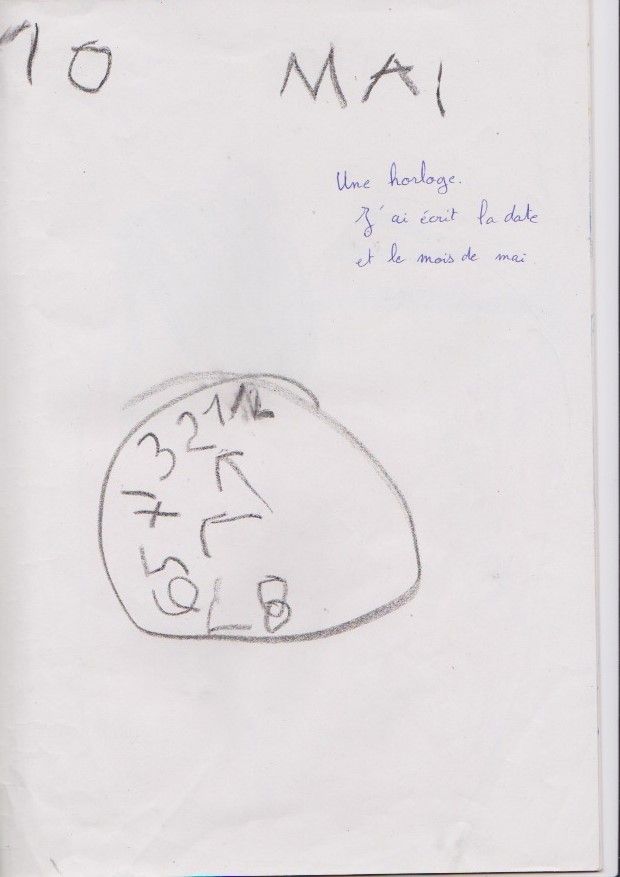 10 MAI
Une horloge.
J'ai écrit la date
et le mois de mai
12
1
2
3
4
5
6
7
8